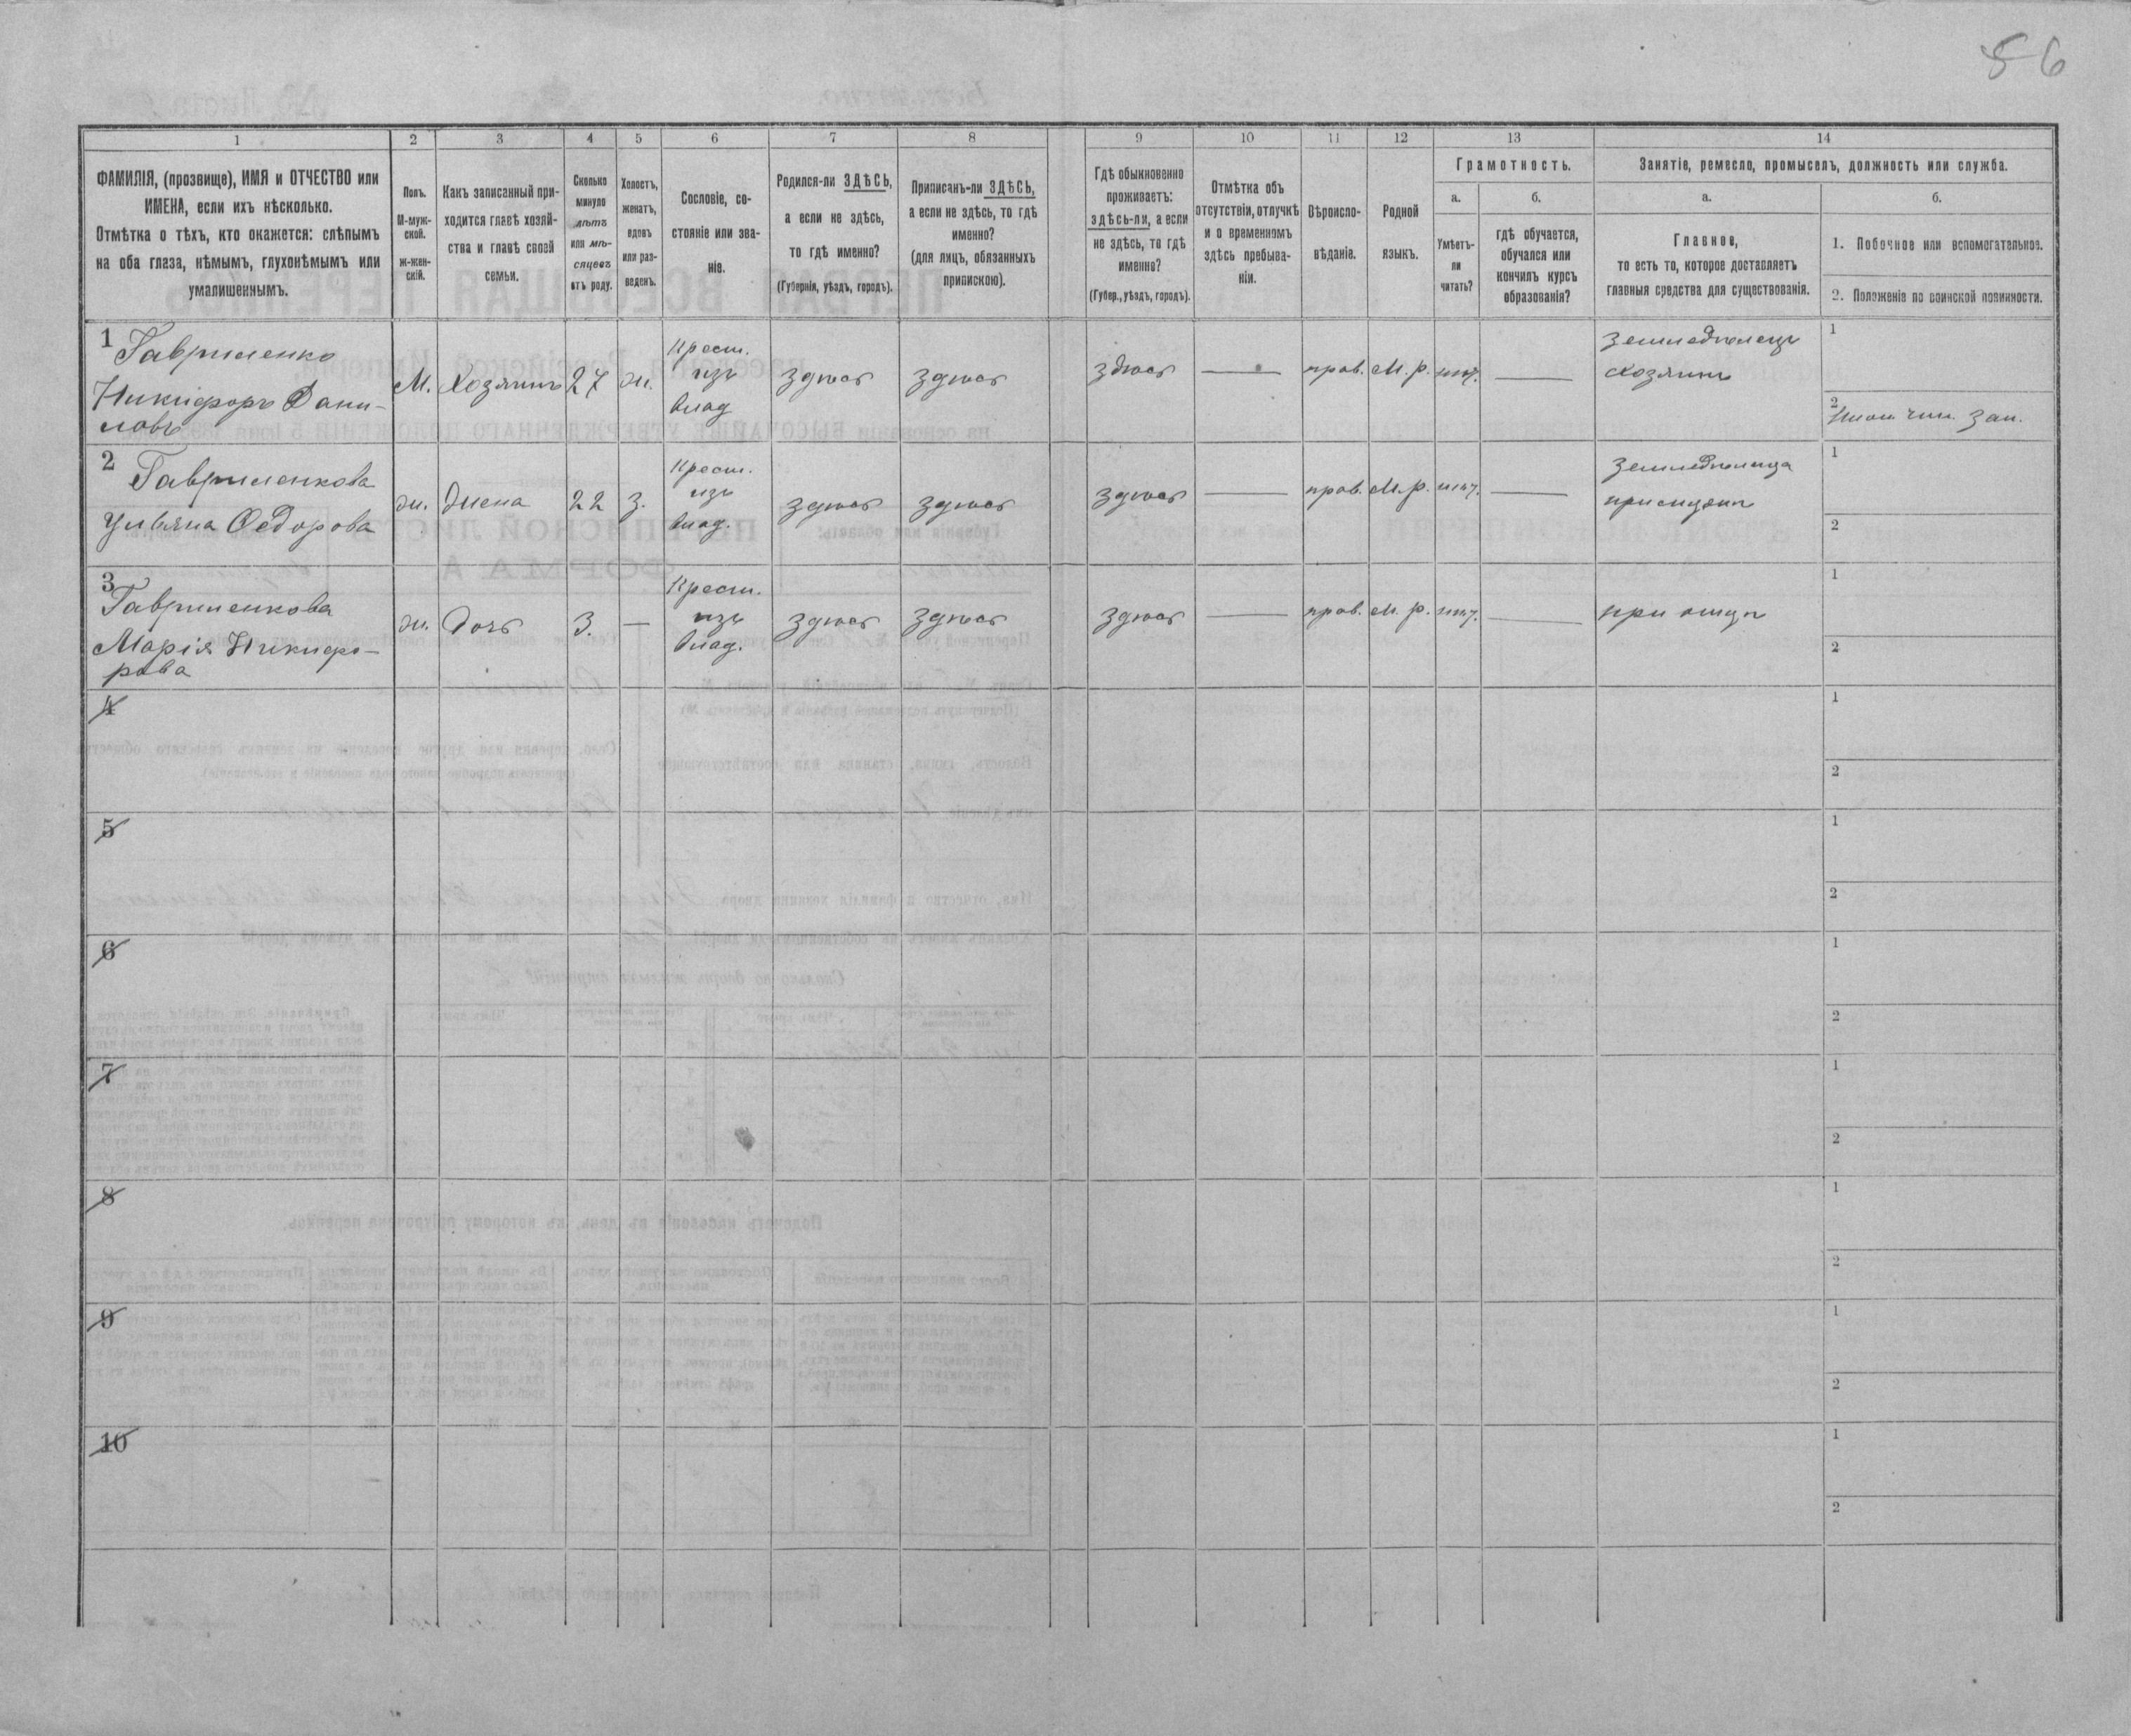 56
1 2 3 4 5 6 7 8 9 10 11 12 13 14
ФАМИЛІЯ, (прозвище), ИМЯ и ОТЧЕСТВО или
ИМЕНА, если ихъ нѣсколько.
Отмѣтка о тѣхъ, кто окажется: слѣпымъ
на оба глаза, нѣмымъ, глухонѣмымъ или
умалишеннымъ.
Полъ.
М-муж-
ской.
ж-жен-
скій.
Какъ записанный при-
ходится главѣ хозяй-
ства и главѣ своей
семьи.
Сколько
минуло
лѣтъ
или мѣ-
сяцевъ
отъ роду.
Холостъ,
женатъ,
вдовъ
или раз-
веденъ.
Сословіе, со-
стояніе или зва-
ніе.
Родился-ли ЗДѢСЬ,
а если не здѣсь,
то гдѣ именно?
(Губернія, уѣздъ, городъ).
Приписанъ-ли ЗДѢСЬ,
а если не здѣсь, то гдѣ
именно?
(для лицъ, обязанныхъ
припискою).
Гдѣ обыкновенно
проживаетъ:
здѣсь-ли, а если
не здѣсь, то гдѣ
именно?
(Губер., уѣздъ, городъ).
Отмѣтка объ
отсутствіи, отлучкѣ
и о временномъ
здѣсь пребыва-
ніи.
Вѣроиспо-
вѣданіе.
Родной
языкъ.
Грамотность.
а.
Умѣетъ-
ли
читать?
б.
гдѣ обучается,
обучался или
кончилъ курсъ
образованія?
Занятіе, ремесло, промыселъ, должность или служба.
а.
Главное,
то есть то, которое доставляетъ
главныя средства для существованія.
б.
1. Побочное или вспомогательное.
2. Положеніе по воинской повинности.
1 Гавриленко
Никифоръ Дани-
ловъ
М.
Хозяинъ
27
ж.
Крест.
изъ
влад
здѣсь
здѣсь
здѣсь
—
прав.
М. р.
нѣт.
—
земледѣлецъ
хозяинъ
1
2
зап.
2 Гавриленкова
Ульяна Федорова
ж.
жена
22
з.
Крест.
изъ
влад.
здѣсь
здѣсь
здѣсь
—
прав.
М. р.
нѣт.
—
земледѣлица
при мужѣ
1
2
3
Гавриленкова
Марія Никифо-
рова
ж.
дочь
3.
—
Крест.
изъ
влад.
здѣсь
здѣсь
здѣсь
—
прав.
М. р.
нѣт.
—
при отцѣ
1
2
4
1
2
5
1
2
6
1
2
7
1
2
8
1
2
9
1
2
10
1
2